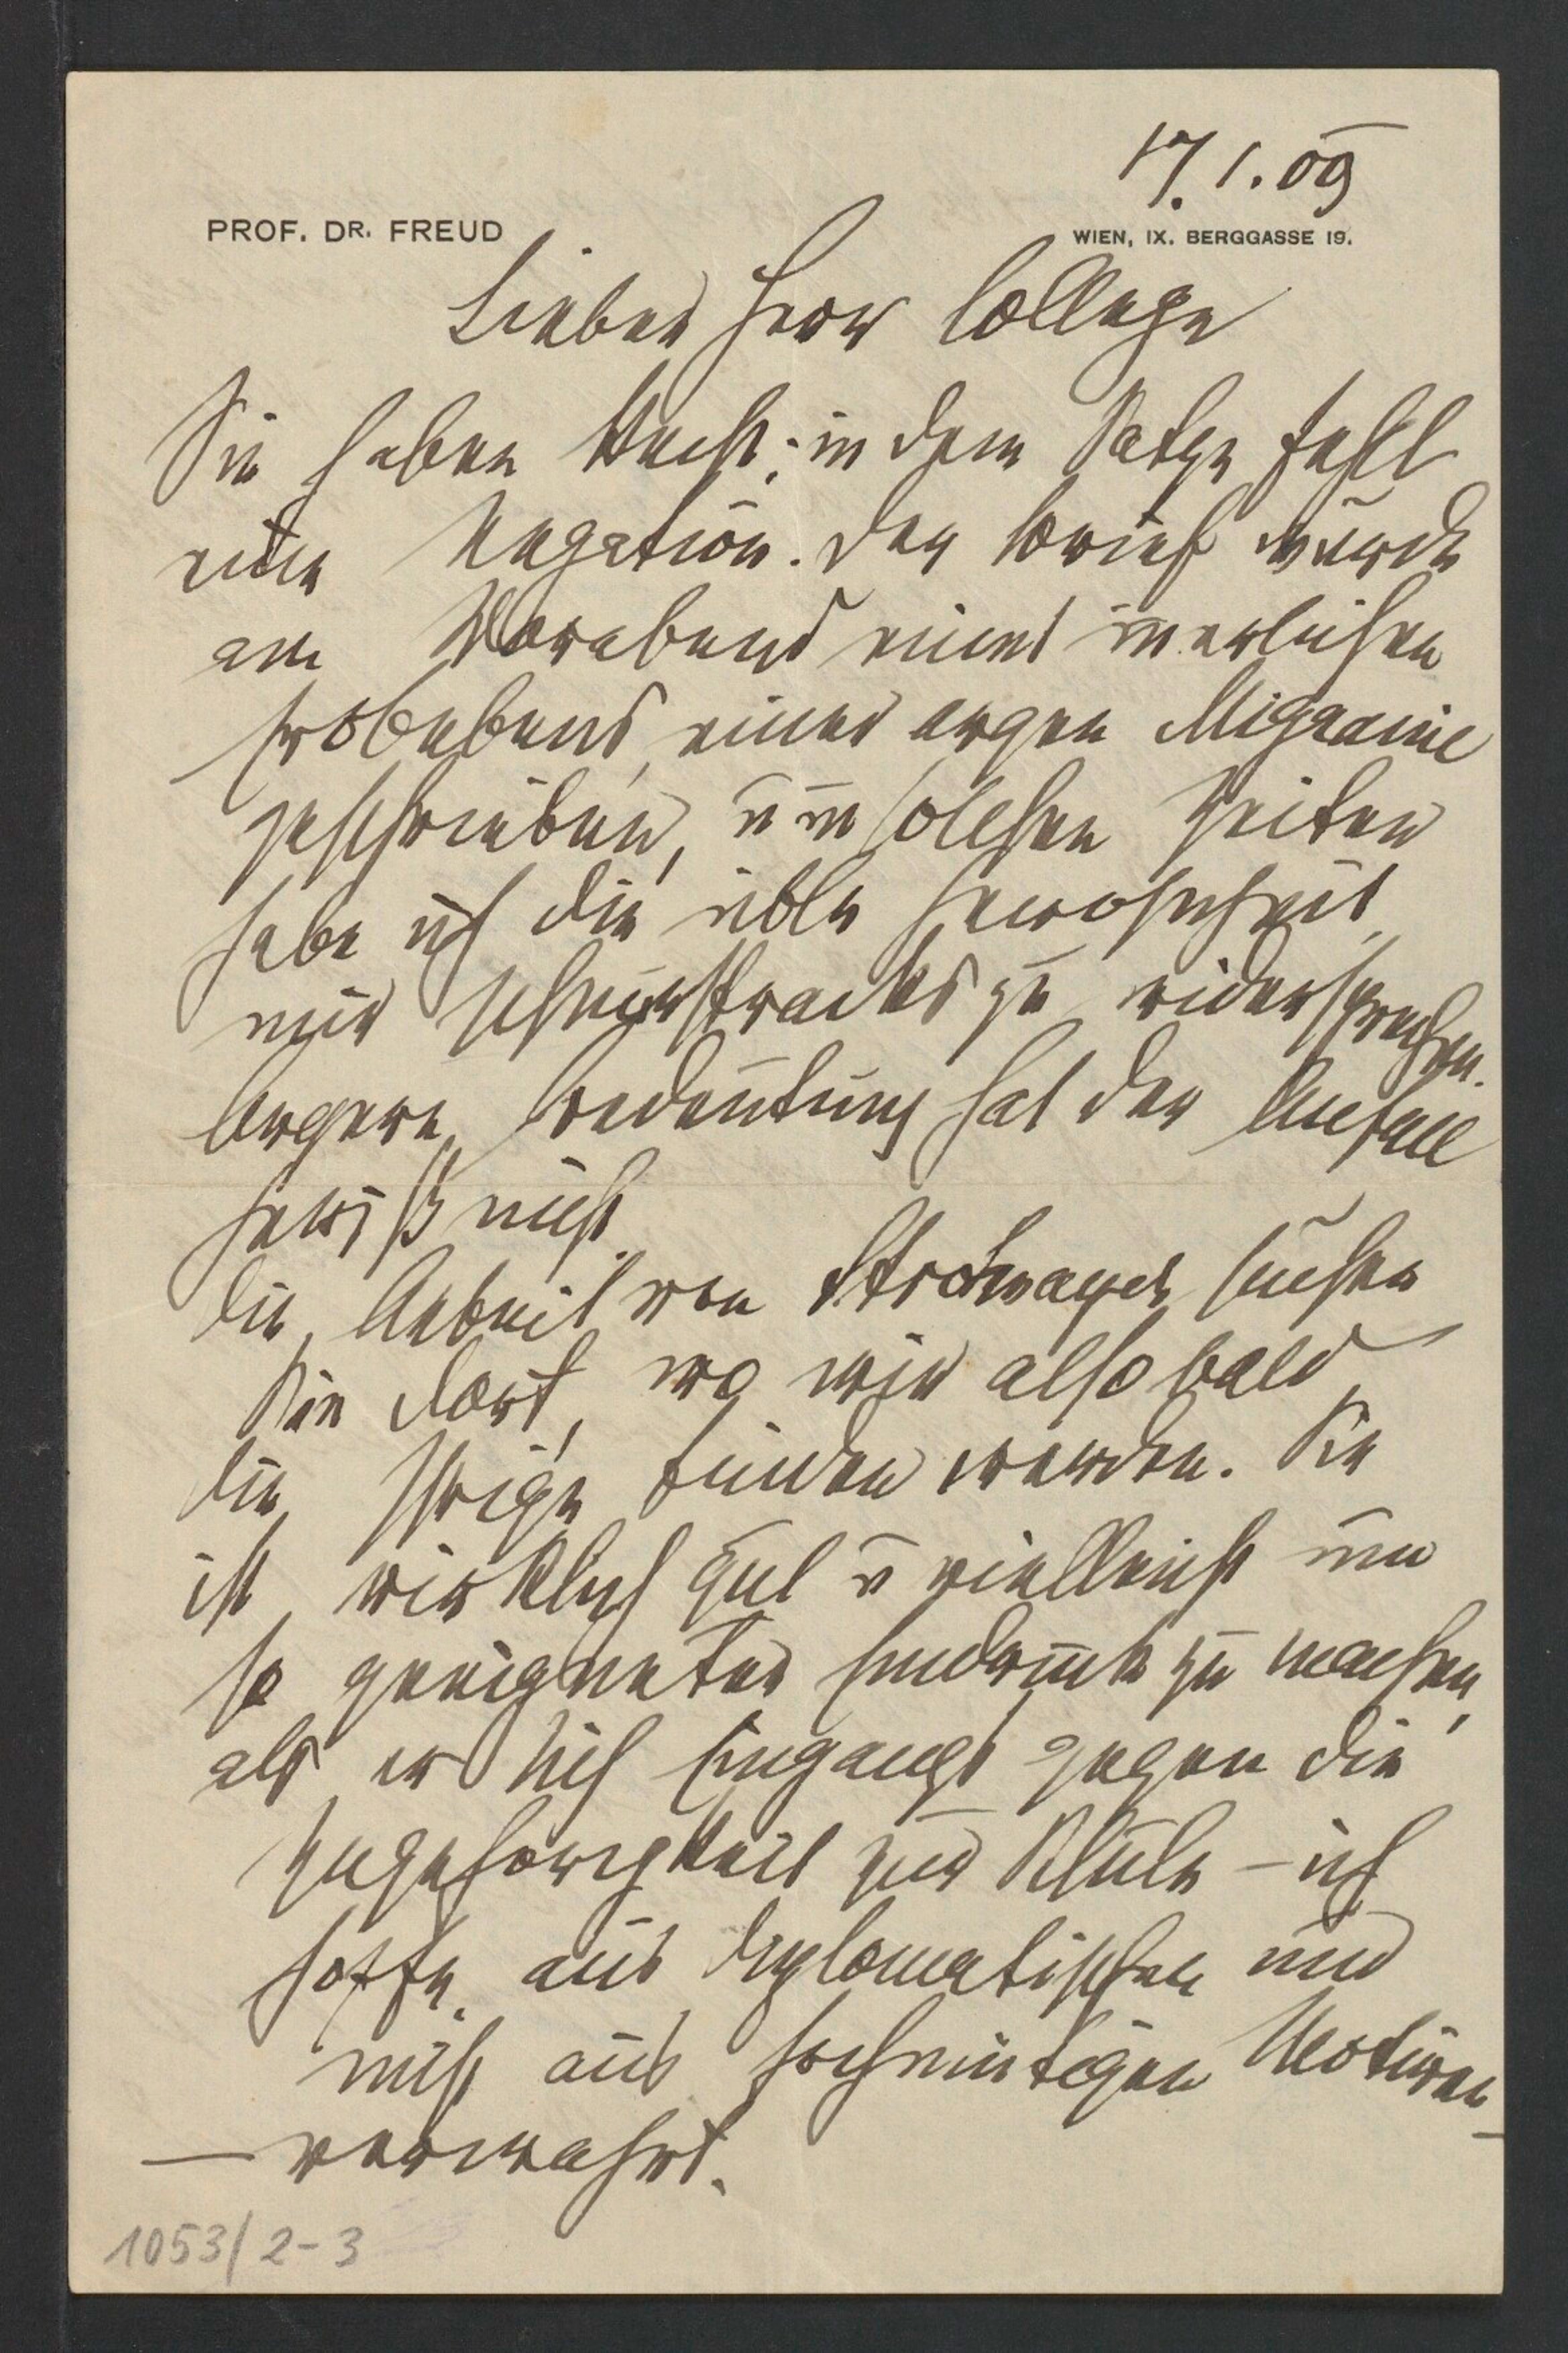 17. 1. 09
PROF. DR. FREUD
WIEN, IX. BERGGASSE 19.
Lieber Herr College
Sie haben Recht; in dem Satze fehlt
eine Negation. Der Brief wurde
am Vorabend eines
einer argen Migraine
geschrieben, u in solchen Zeiten
habe ich die üble Gewohnheit,
mir schnurstracks zu widersprechen.
Ärgere Bedeutung hat der Anfall
gewiß nicht.
Die Arbeit von Strohmayer suchen
Sie dort, wo wir alsobald
die Ihrige finden werden. Sie
ist wirklich gut u vielleicht um
so geeigneter Eindruck zu machen,
als er sich Eingangs gegen die
Zugehörigkeit zur Schule – ich
hoffe aus diplomatischen und
nicht aus hochmütigen Motiven –
– verwahrt.
1053/2-3